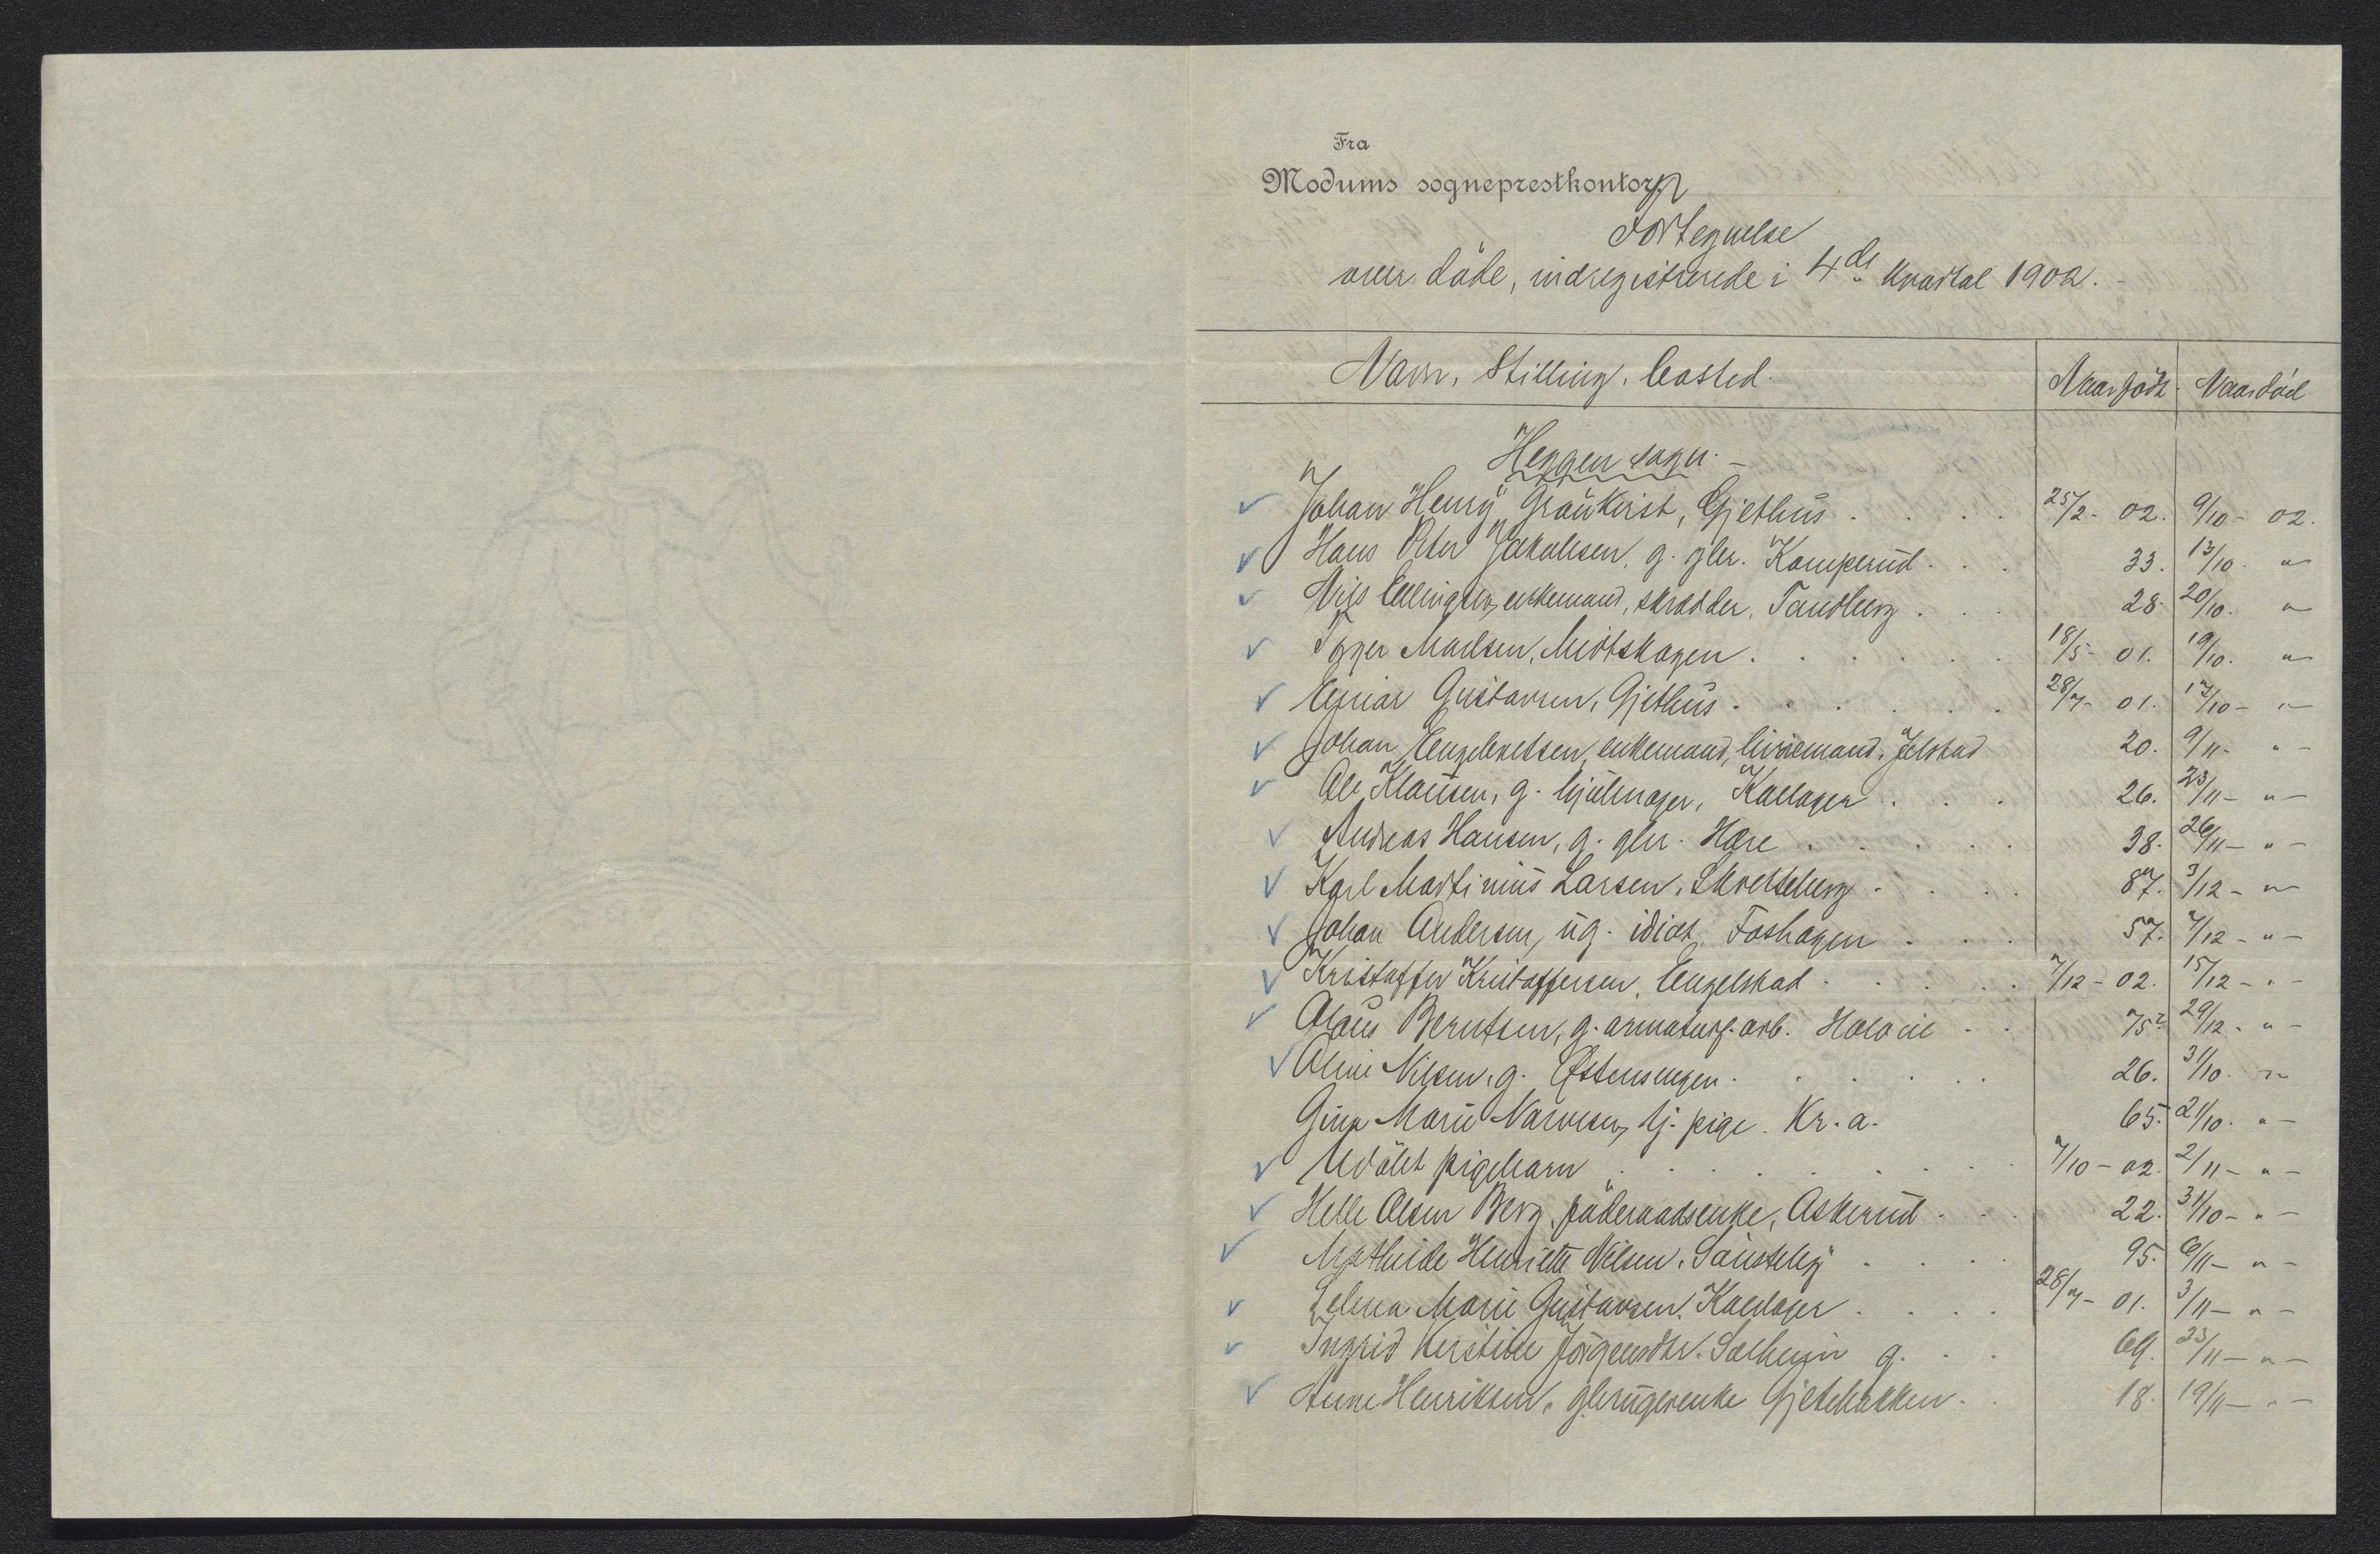 Fra
Modums sogneprestkontor
Fortegnelse
over døde, indregistrerede i 4de kvartal 1902.
Navn, Stilling, bosted. Naar født. Naar død
Heggen sogn.
Johan Henry Graukvist, Gjethus . . . . 25/2 - 02. 9/10 - 02.
Hans Peter Jakobsen, g. gbr. Komperud . . . 33. 13/10. "
Nils Ellingsen, enkemand, skrædder, Tandberg . . . 28. 20/10. "
Madsen, . . . . . . 18/5 - 01. 19/10. "
Einar Gustavsen, Gjethus . . . . . . 28/7 - 01. 17/10 - "
Johan Engebretsen, enkemand, Jelstad 20. 9/11 - " -
Ole Klausen, g. hjulmager, Kallager . . . 26. 23/11 - " -
Andreas Hansen, g. gbr. Hære . . . . . 38. 26/11 - " -
Karl Martinius Larsen, Skretteberg . . . . 87. 3/12 - "
Johan Andersen, ug. idiot, Foshagen . . . 57. 7/12 - " -
Kristoffer Kristoffersen, Engelstad . . . . . 7/12 - 02. 15/12 - " -
Olaus Berntsen, g. armaturf. arb. . . 75? 29/12 - " -
Oline Nilsen, g. Østensengen . . . . . . 26. 31/10. "
Gina Marie Narvesen, tj. pige. Kr. a. 65. 21/10. " -
Udøbt pigebarn . . . . . . . . 7/10 - 02. 2/11 - " -
Helle Olsen Berg, føderaadsenke, Askerud . . . 22. 31/10 - " -
Mathilde Henriette Nilsen, . . . . 95. 6/11 - " -
Selma Marie Gustavsen, Kallager . . . . 28/7 - 01. 3/11 - " -
Ingrid Kerstine Jørgensdtr. g. . . 69. 23/11 - " -
Anne Henriksen, gbrugerenke Gjetebakken . . 18. 19/11 - " -